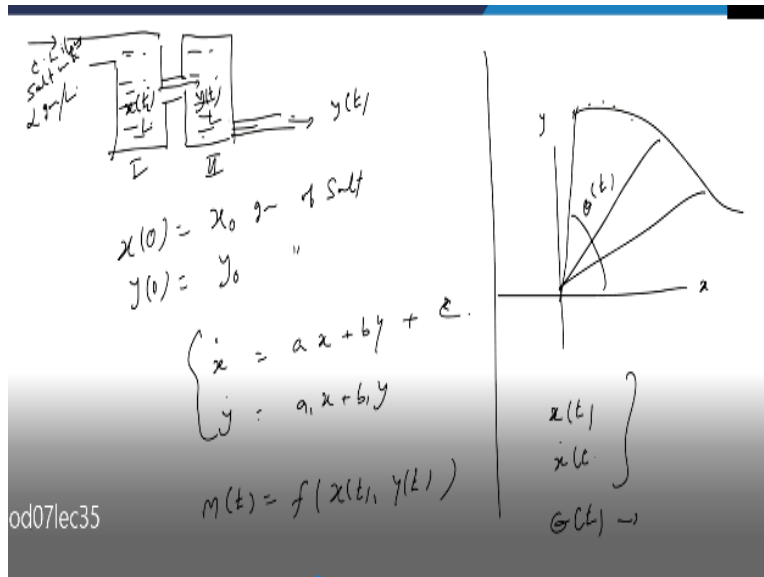 Salt in
gm/L
x(t) y(t)
I II
y(t)
x(0) = x₀ gm of Salt
y(0) = y₀ "
ẋ = a x + b y + c.
ẏ = a₁ x + b₁ y
M(t) = f(x(t), y(t))
y
θ(t)
x
x(t)
ẋ(t
θ(t) →
od07lec35